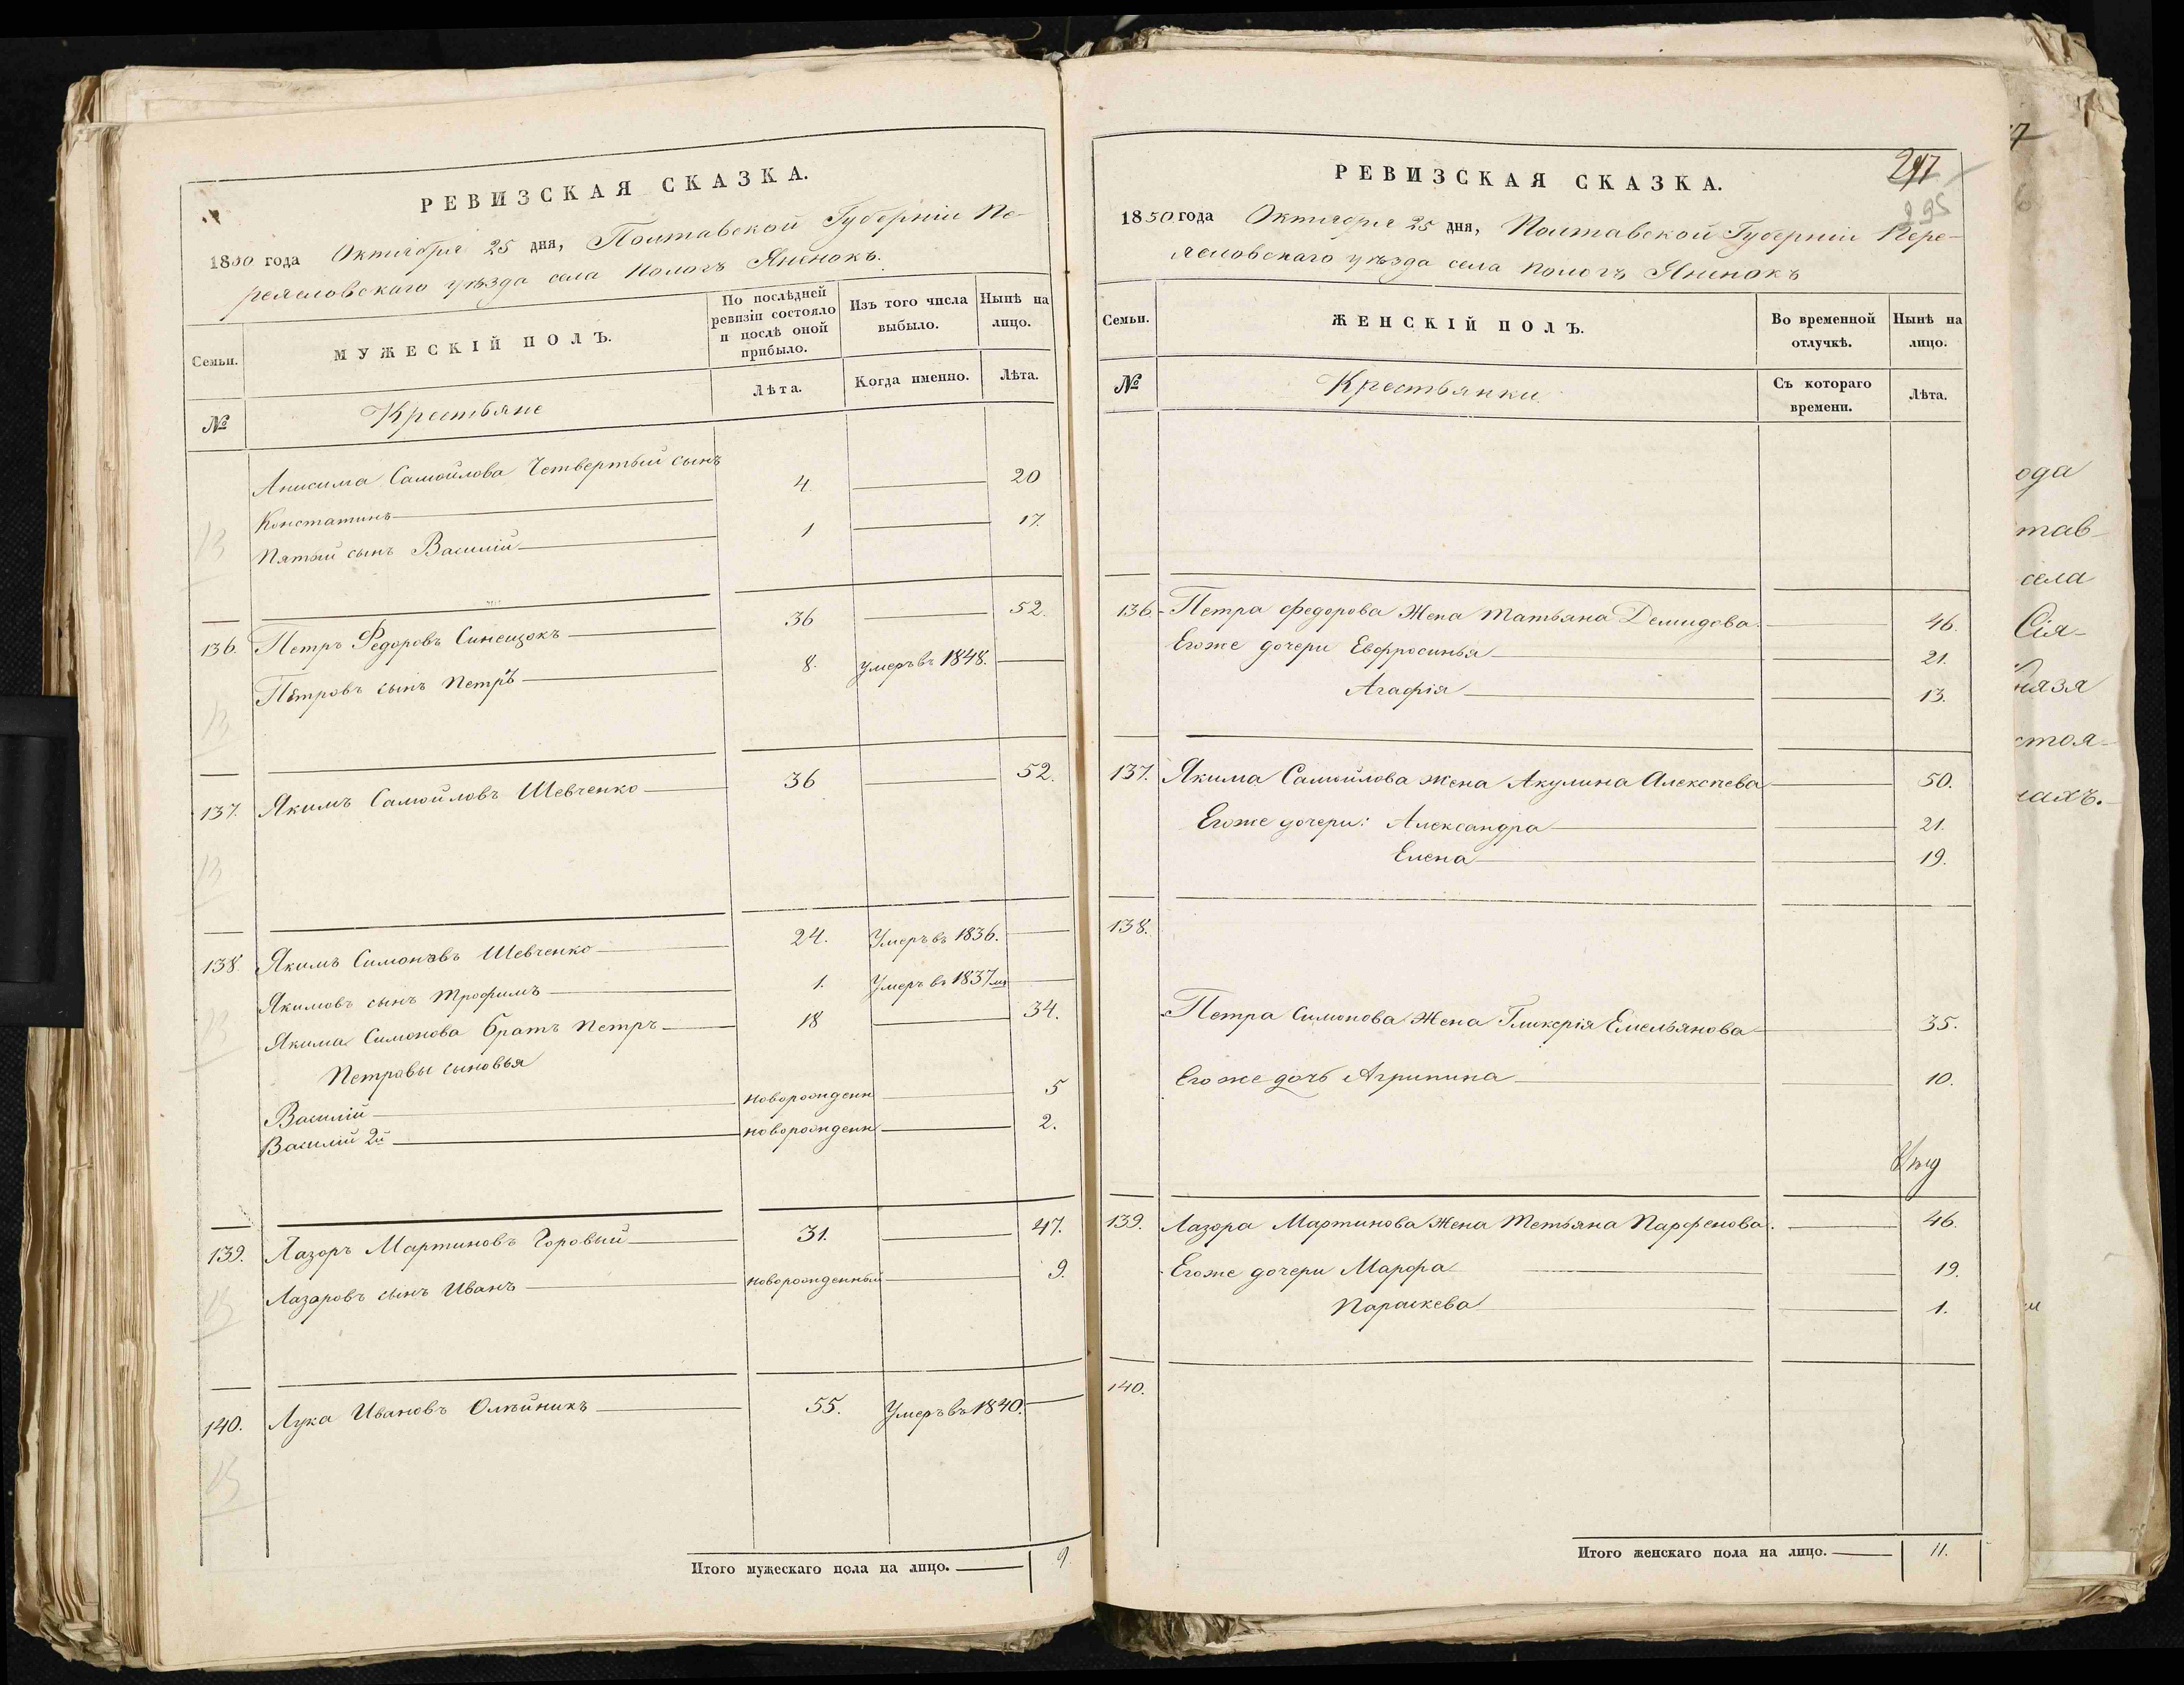 РЕВИЗСКАЯ СКАЗКА.
1850 года Октября 25 дня, Полтавской Губерніи Пе-
реяславскаго уѣзда села Пологъ Яненокъ.
Семьи.
МУЖЕСКІЙ ПОЛЪ.
По послѣдней
ревизіи состояло
и послѣ оной
прибыло.
Изъ того числа
выбыло.
Нынѣ на
лицо.
№
Крестьяне
Лѣта.
Когда именно.
Лѣта.
Анисима Самойлова Четвертый сынъ
Констатинъ 4. 20
Пятый сынъ Василій 1 17.
136. Петръ Федоровъ Синещокъ 36 52.
Петровъ сынъ Петръ 8. умеръ въ 1848.
137. Якимъ Самойловъ Шевченко 36 52.
138. Якимъ Симоновъ Шевченко 24. Умеръ въ 1836.
Якимовъ сынъ Трофимъ 1. Умеръ въ 1837мъ
Якима Симонова братъ Петръ 18 34.
Петровы сыновья
Василій новорожденн 5
Василій 2й новорожденн 2.
139. Лазоръ Мартиновъ Горовый 31. 47.
Лазаровъ сынъ Иванъ новорожденный 9.
140. Лука Ивановъ Олѣйникъ 55. Умеръ въ 1840.
Итого мужескаго пола на лицо. 9.
297
295
РЕВИЗСКАЯ СКАЗКА.
1850 года Октября 25 дня, Полтавской Губерніи Пере-
яславскаго уѣзда села Пологъ Яненокъ
Семьи.
ЖЕНСКІЙ ПОЛЪ.
Во временной
отлучкѣ.
Нынѣ на
лицо.
№
Крестьянки
Съ котораго
времени.
Лѣта.
136. Петра Федорова Жена Татьяна Демидова 46.
Егоже дочери Евфросинья 21.
Агафія 13.
137. Якима Самойлова жена Акулина Алексѣева 50.
Егоже дочери: Александра 21.
Елена 19.
138.
Петра Симонова Жена Гликерія Емельянова 35.
Егоже дочь Агрипина 10.
139. Лазора Мартинова Жена Тетьяна Парфенова. 46.
Егоже дочери Марфа 19.
Параскева 1.
140.
Итого женскаго пола на лицо. 11.
ода
тав-
села
Сія-
нязя
стоя-